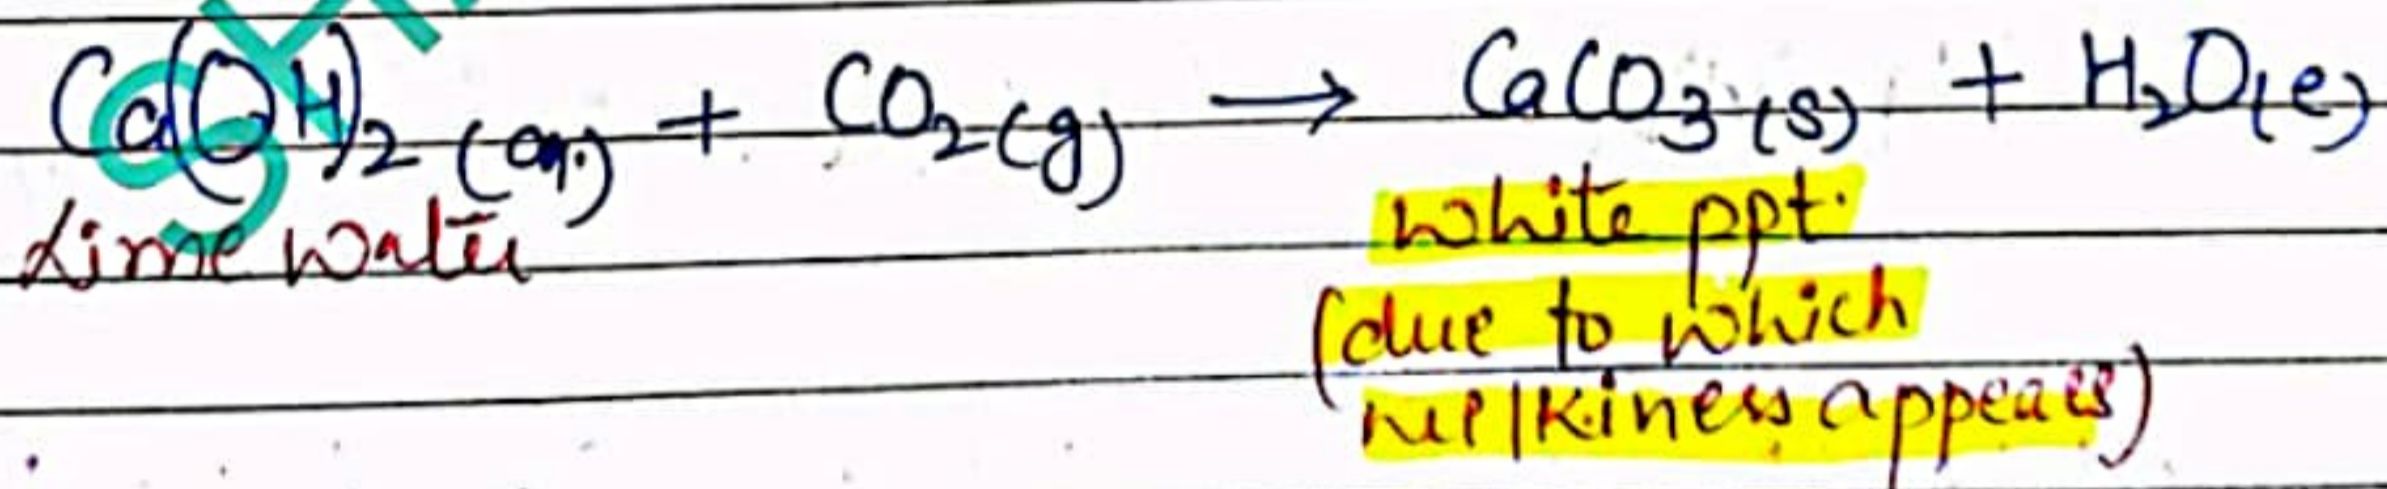 Ca(OH)₂ (aq.) + CO₂ (g) → CaCO₃ (s) + H₂O(l)
Lime water
white ppt.
(due to which
milkiness appears)